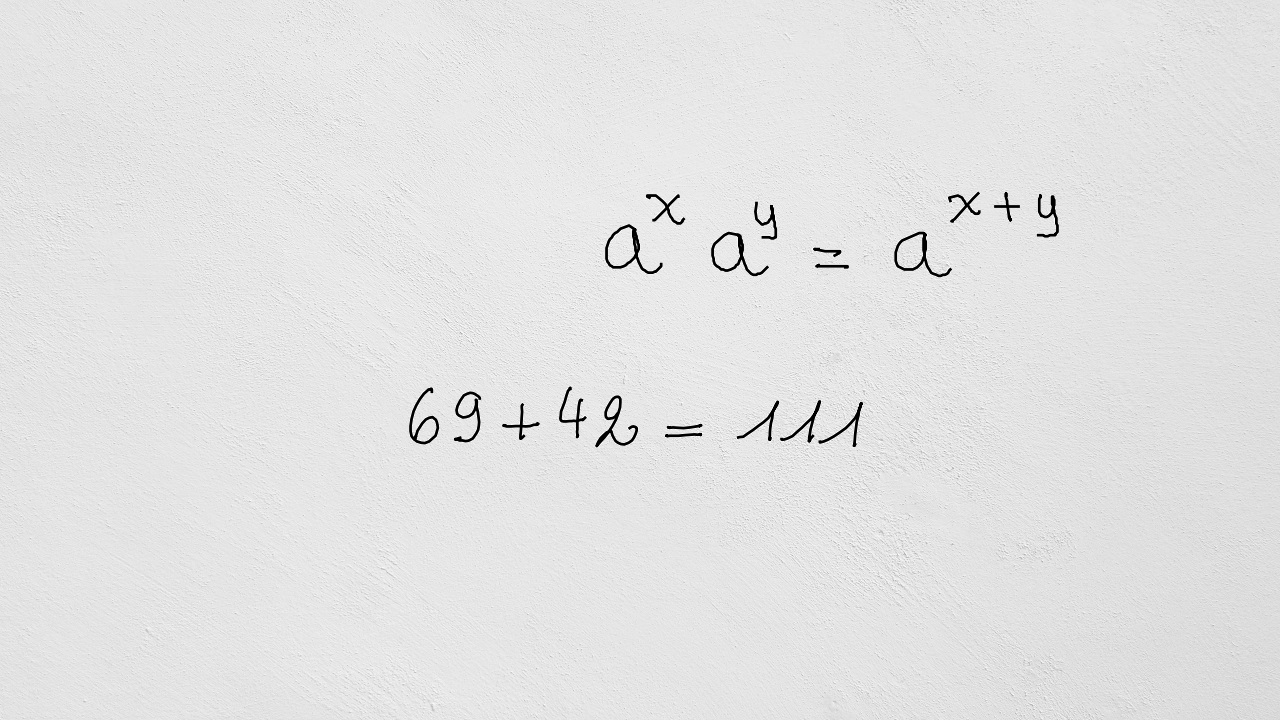 aˣ aʸ = aˣ⁺ʸ
69 + 42 = 111